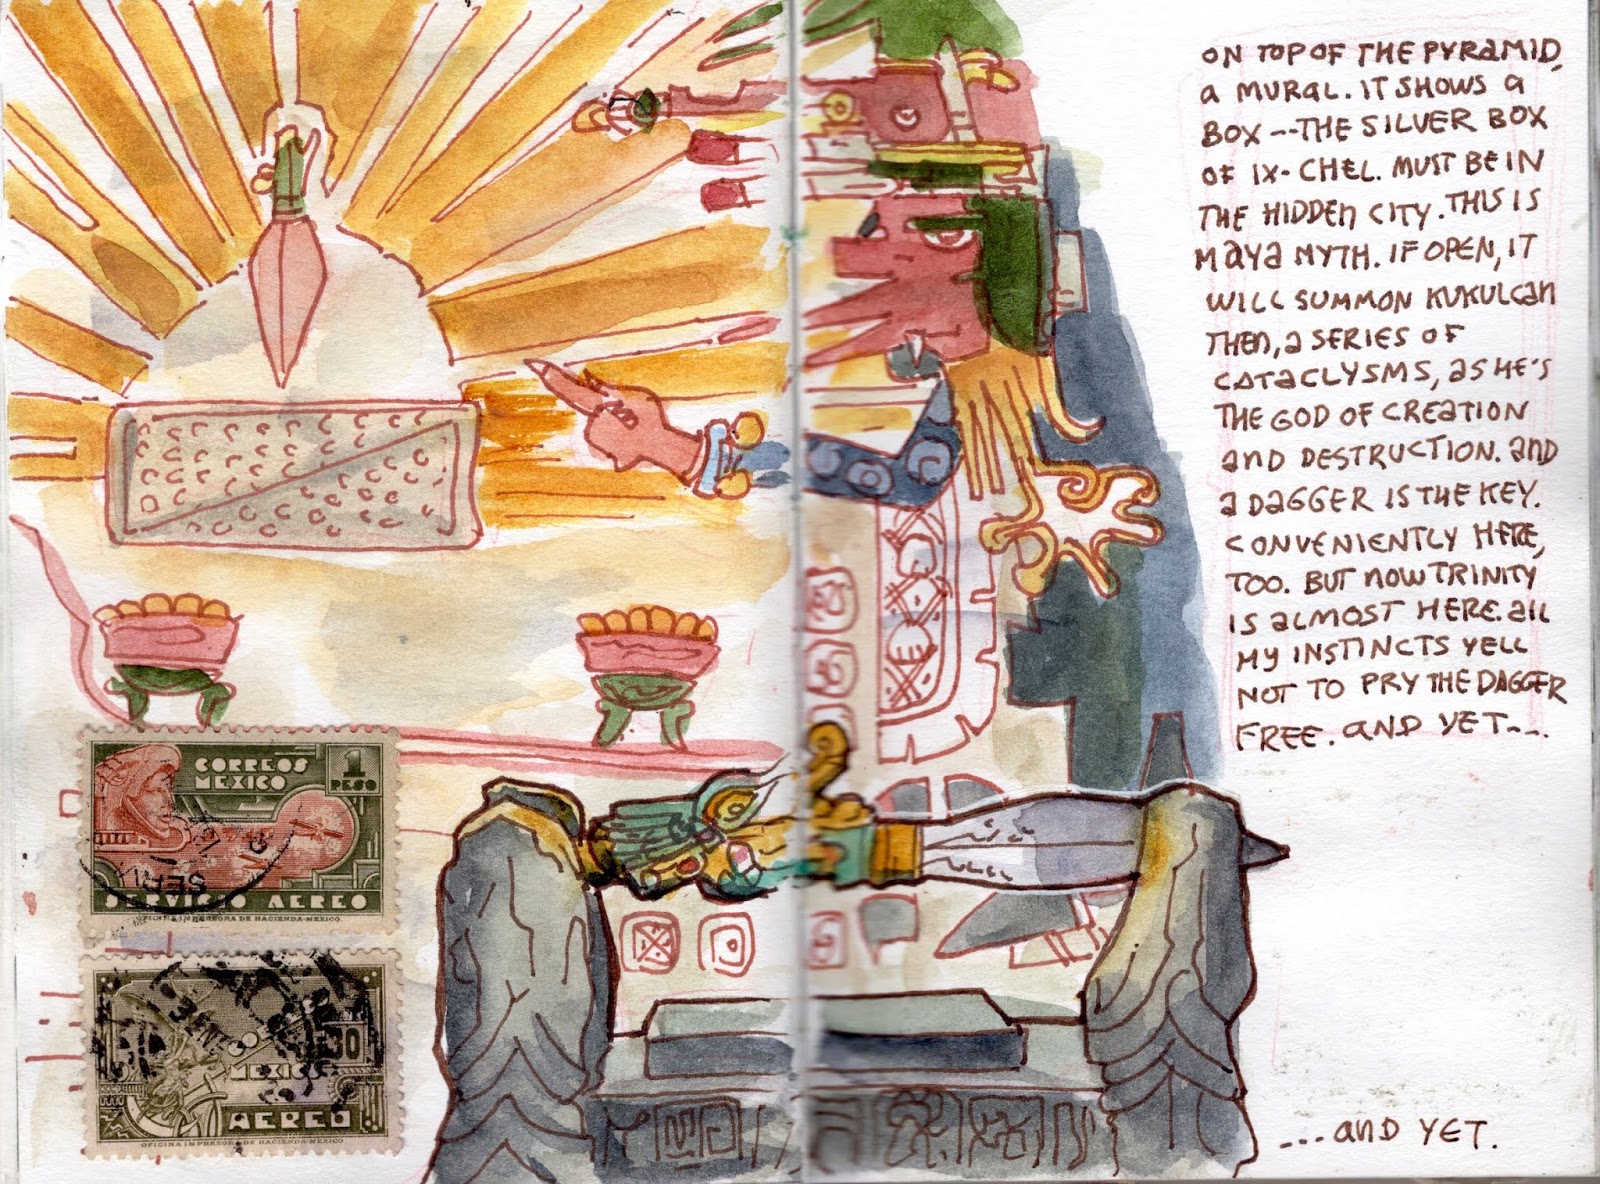 ON TOP OF THE PYRAMID,
a MURaL. IT SHOWS a
BOX---THE SILVER BOX
OF IX-CHEL. MUST BE IN
THE HIDDEN CITY. THIS IS
MaYa MYTH. IF OPEN, IT
WILL SUMMON KUKULCaN
THEN, a SERIES OF
CaTaCLYSMS, aS HE'S
THE GOD OF CREATION
aND DESTRUCTION. aND
a DaGGER IS THE KEY.
CONVENIENTLY HERE,
TOO. BUT NOW TRINITY
IS aLMOST HERE. aLL
MY INSTINCTS YELL
NOT TO PRY THE DaGGER
FREE. aND YET---.
CORREOS
MEXICO
1
PESO
SERVICIO AEREO
OFICINA IMPRESORA DE HACIENDA-MEXICO
30
MEXICO
AEREO
OFICINA IMPRESORA DE HACIENDA-MEXICO
...aND YET.